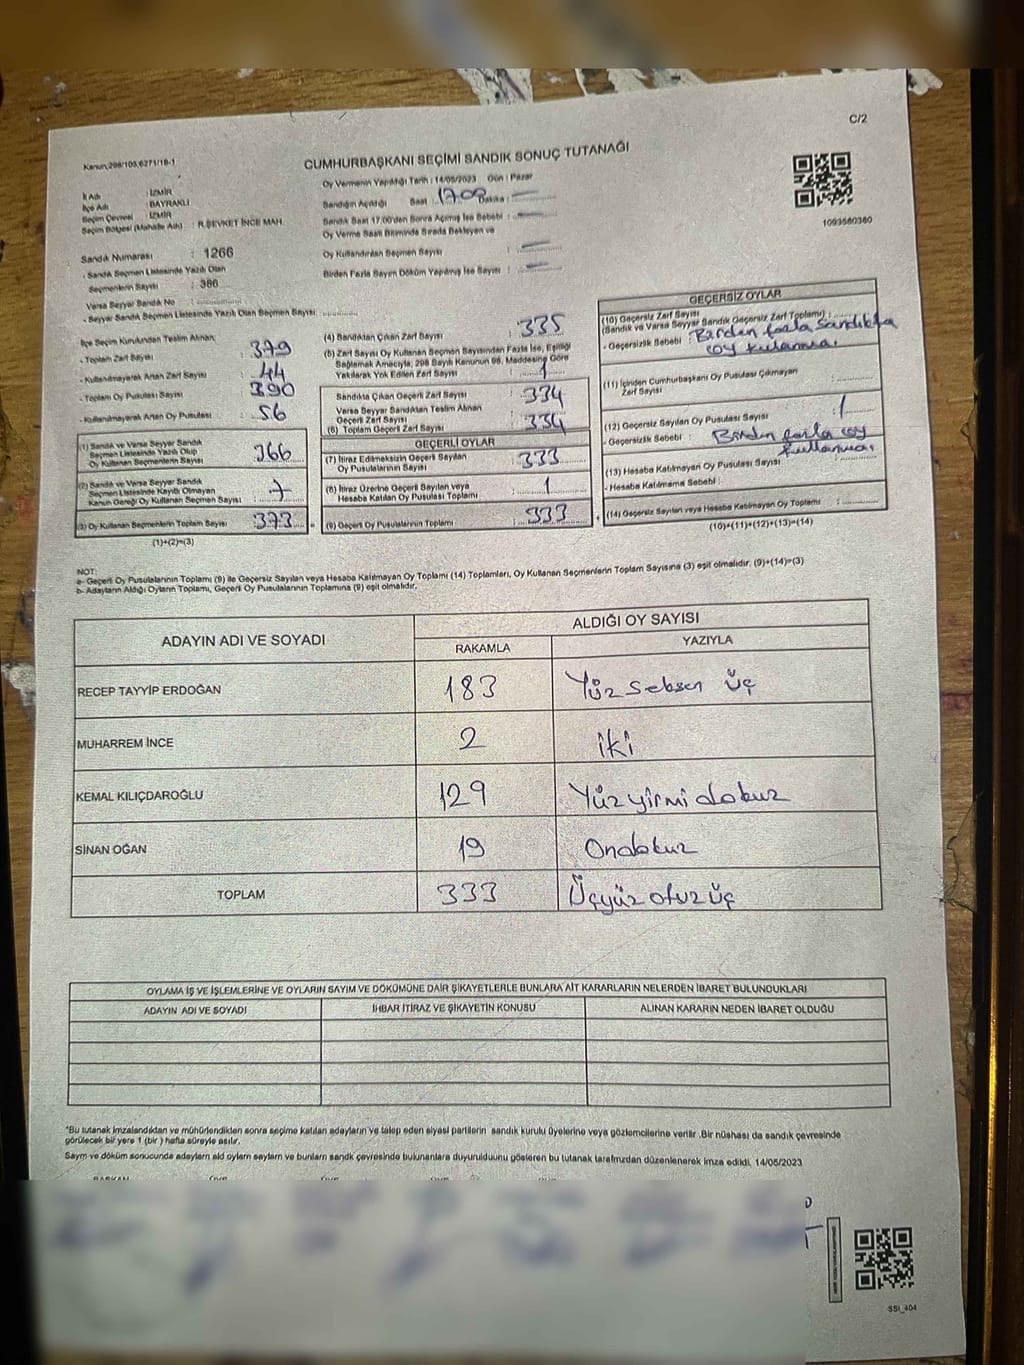 C/2
Kanun,298/105,6271/18-1
CUMHURBAŞKANI SEÇİMİ SANDIK SONUÇ TUTANAĞI
İl Adı : İZMİR
İlçe Adı : BAYRAKLI
Seçim Çevresi : İZMİR
Seçim Bölgesi (Mahalle Adı) : R.ŞEVKET İNCE MAH.
Oy Vermenin Yapıldığı Tarih : 14/05/2023 Gün : Pazar
Sandığın Açıldığı Saat : 17.00 Dakika :
Sandık Saat 17:00'den Sonra Açılmış İse Sebebi :
Oy Verme Saati Bitiminde Sırada Bekleyen ve
Oy Kullandırılan Seçmen Sayısı :
Birden Fazla Sayım Döküm Yapılmış İse Sayısı :
1093580380
Sandık Numarası : 1266
- Sandık Seçmen Listesinde Yazılı Olan
Seçmenlerin Sayısı : 386
Varsa Seyyar Sandık No :
- Seyyar Sandık Seçmen Listesinde Yazılı Olan Seçmen Sayısı:
İlçe Seçim Kurulundan Teslim Alınan;
- Toplam Zarf Sayısı : 379
- Kullanılmayarak Artan Zarf Sayısı : 44
- Toplam Oy Pusulası Sayısı : 390
- Kullanılmayarak Artan Oy Pusulası : 56
(1) Sandık ve Varsa Seyyar Sandık
Seçmen Listesinde Yazılı Olup
Oy Kullanan Seçmenlerin Sayısı : 366
(2) Sandık ve Varsa Seyyar Sandık
Seçmen Listesinde Kayıtlı Olmayan
Kanun Gereği Oy Kullanan Seçmen Sayısı : 7
(3) Oy Kullanan Seçmenlerin Toplam Sayısı : 373
(1)+(2)=(3)
(4) Sandıktan Çıkan Zarf Sayısı : 335
(5) Zarf Sayısı Oy Kullanan Seçmen Sayısından Fazla İse, Eşitliği
Sağlamak Amacıyla, 298 Sayılı Kanunun 98. Maddesine Göre
Yakılarak Yok Edilen Zarf Sayısı : 1
Sandıkta Çıkan Geçerli Zarf Sayısı : 334
Varsa Seyyar Sandıktan Teslim Alınan
Geçerli Zarf Sayısı
(6) Toplam Geçerli Zarf Sayısı : 334
GEÇERLİ OYLAR
(7) İtiraz Edilmeksizin Geçerli Sayılan
Oy Pusulalarının Sayısı : 333
(8) İtiraz Üzerine Geçerli Sayılan veya
Hesaba Katılan Oy Pusulası Toplamı : 1
(9) Geçerli Oy Pusulalarının Toplamı : 333
GEÇERSİZ OYLAR
(10) Geçersiz Zarf Sayısı
(Sandık ve Varsa Seyyar Sandık Geçersiz Zarf Toplamı) :
- Geçersizlik Sebebi : Birden fazla Sandıkta
oy kullanma.
(11) İçinden Cumhurbaşkanı Oy Pusulası Çıkmayan
Zarf Sayısı :
(12) Geçersiz Sayılan Oy Pusulası Sayısı : 1
- Geçersizlik Sebebi : Birden fazla oy
kullanma.
(13) Hesaba Katılmayan Oy Pusulası Sayısı :
- Hesaba Katılmama Sebebi :
(14) Geçersiz Sayılan veya Hesaba Katılmayan Oy Toplamı :
(10)+(11)+(12)+(13)=(14)
NOT:
a- Geçerli Oy Pusulalarının Toplamı (9) ile Geçersiz Sayılan veya Hesaba Katılmayan Oy Toplamı (14) Toplamları, Oy Kullanan Seçmenlerin Toplam Sayısına (3) eşit olmalıdır. (9)+(14)=(3)
b- Adayların Aldığı Oyların Toplamı, Geçerli Oy Pusulalarının Toplamına (9) eşit olmalıdır.
ADAYIN ADI VE SOYADI
ALDIĞI OY SAYISI
RAKAMLA YAZIYLA
RECEP TAYYİP ERDOĞAN 183 Yüz seksen üç
MUHARREM İNCE 2 iki
KEMAL KILIÇDAROĞLU 129 Yüzyirmidokuz
SİNAN OĞAN 19 Ondokuz
TOPLAM 333 Üçyüz otuz üç
OYLAMA İŞ VE İŞLEMLERİNE VE OYLARIN SAYIM VE DÖKÜMÜNE DAİR ŞİKAYETLERLE BUNLARA AİT KARARLARIN NELERDEN İBARET BULUNDUKLARI
ADAYIN ADI VE SOYADI İHBAR İTİRAZ VE ŞİKAYETİN KONUSU ALINAN KARARIN NEDEN İBARET OLDUĞU
"Bu tutanak imzalandıktan ve mühürlendikten sonra seçime katılan adayların ve talep eden siyasi partilerin sandık kurulu üyelerine veya gözlemcilerine verilir .Bir nüshası da sandık çevresinde
görülecek bir yere 1 (bir ) hafta süreyle asılır.
Saym ve döküm sonucunda adayların ald oylarn sayları ve bunların sandk çevresinde bulunanlara duyurulduunu gösteren bu tutanak tarafmzdan düzenlenerek imza edildi. 14/05/2023
SSİ_404